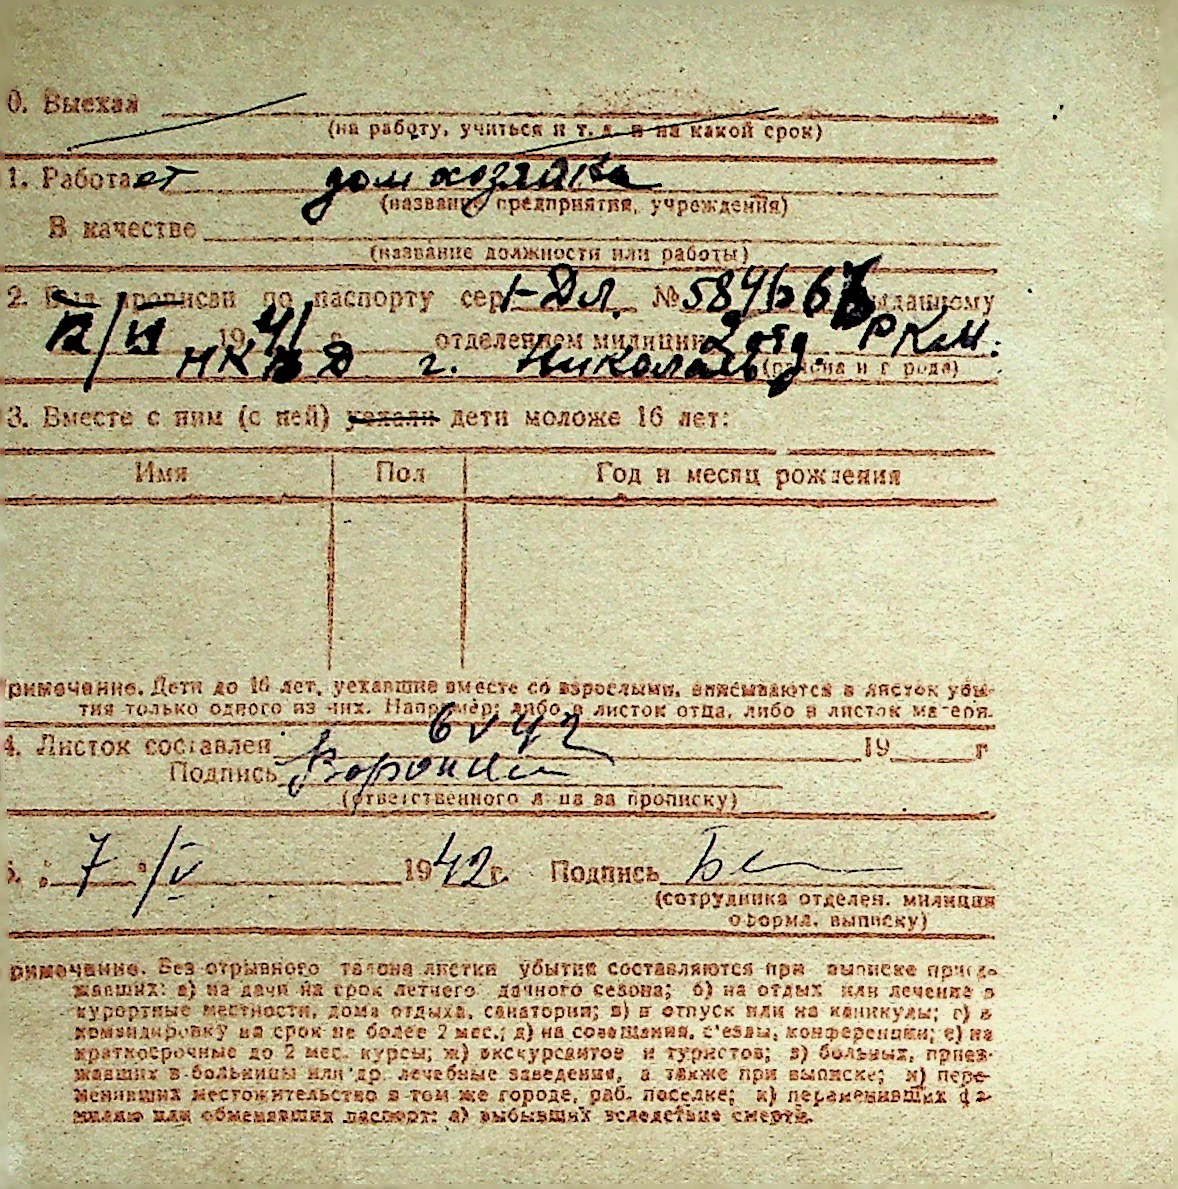 0. Выехал
(на работу, учиться и т. д. и на какой срок)
1. Работает домохозяйка
(название предприятия, учреждения)
В качестве
(название должности или работы)
2. Был прописан по паспорту сер. № выданному
19 41 г. отделением милиции 2 отд. РКМ.
НКВД г. Николаев
(района и города)
3. Вместе с ним (с ней) уехали дети моложе 16 лет:
Имя Пол Год и месяц рождения
римечание. Дети до 16 лет, уехавшие вместе со взрослыми, вписываются в листок убы-
тия только одного из них. Например: либо в листок отца, либо в листок матери.
4. Листок составлен 6 V 42 19 г
Подпись
(ответственного лица за прописку)
5. " 7 " /V 1942 г. Подпись
(сотрудника отделен. милиции
оформл. выписку)
римечание. Без отрывного талона листки убытия составляются при выписке приез-
жавших: а) на дачи на срок летнего дачного сезона; б) на отдых или лечение в
курортные местности, дома отдыха, санатории; в) в отпуск или на каникулы; г) в
командировку на срок не более 2 мес.; д) на совещания, с'езды, конференции; е) на
краткосрочные до 2 мес. курсы; ж) экскурсантов и туристов; з) больных, приез-
жавших в больницы или др. лечебные заведения, а также при выписке; и) пере-
менивших местожительство в том же городе, раб. поселке; к) переменивших фа-
милию или обменявших паспорт; л) выбывших вследствие смерти.